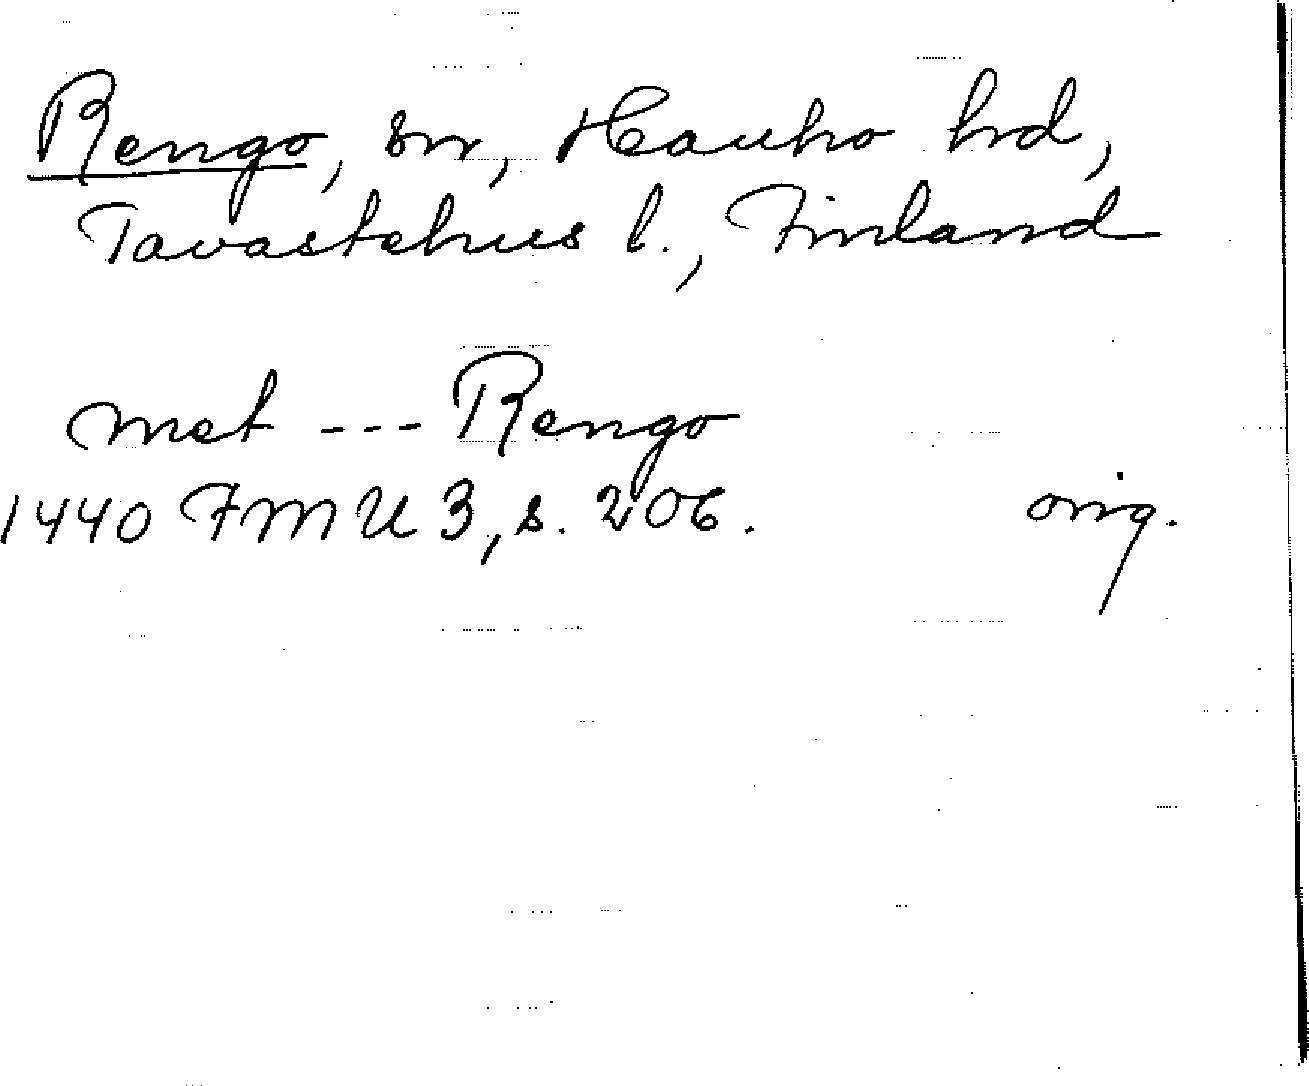 Rengo, sn, Hauho hrd,
Tavastehus l., Finland
met --- Rengo
1440 FMU 3, s. 206. orig.